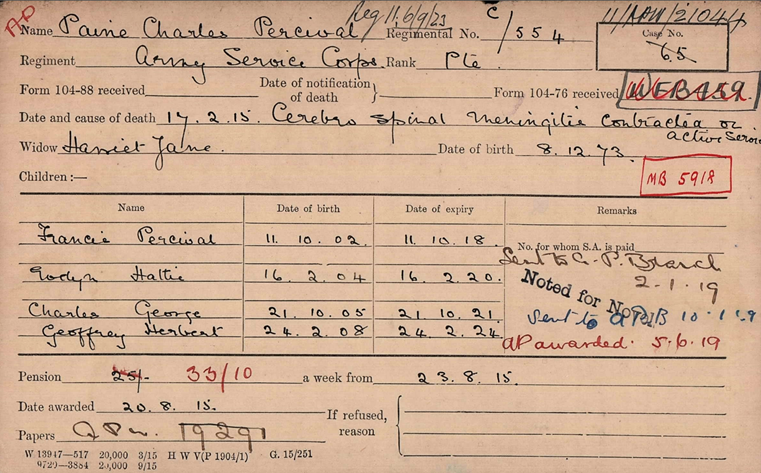 AP Reg 11/6/9/23 C 11/
Name Paine Charles Percival Regimental No. /554 Case No.
65
Regiment Army Service Corps. Rank Pte
Form 104-88 received Date of notification of death } Form 104-76 received
Date and cause of death 17.2.15. Cerebro Spinal Meningitis Contracted on
active Service
Widow Harriet Jane. Date of birth 8.12.73.
Children:— MB 5918
Name Date of birth Date of expiry Remarks
Francis Percival 11.10.02. 11.10.18. No. for whom S.A. is paid
Sent to A.P. Branch
Evelyn Hattie 16.2.04 16.2.20. 2-1-19
Noted for No
Charles George 21.10.05 21.10.21. Sent to
Geoffrey Herbert 24.2.08 24.2.24 AP awarded. 5.6.19
Pension 25/- 33/10 a week from 23.8.15.
Date awarded 20.8.15. If refused,
reason
Papers 19291
W 13947—517 20,000 3/15 H W V(P 1904/1) G. 15/251
9729—3884 20,000 9/15